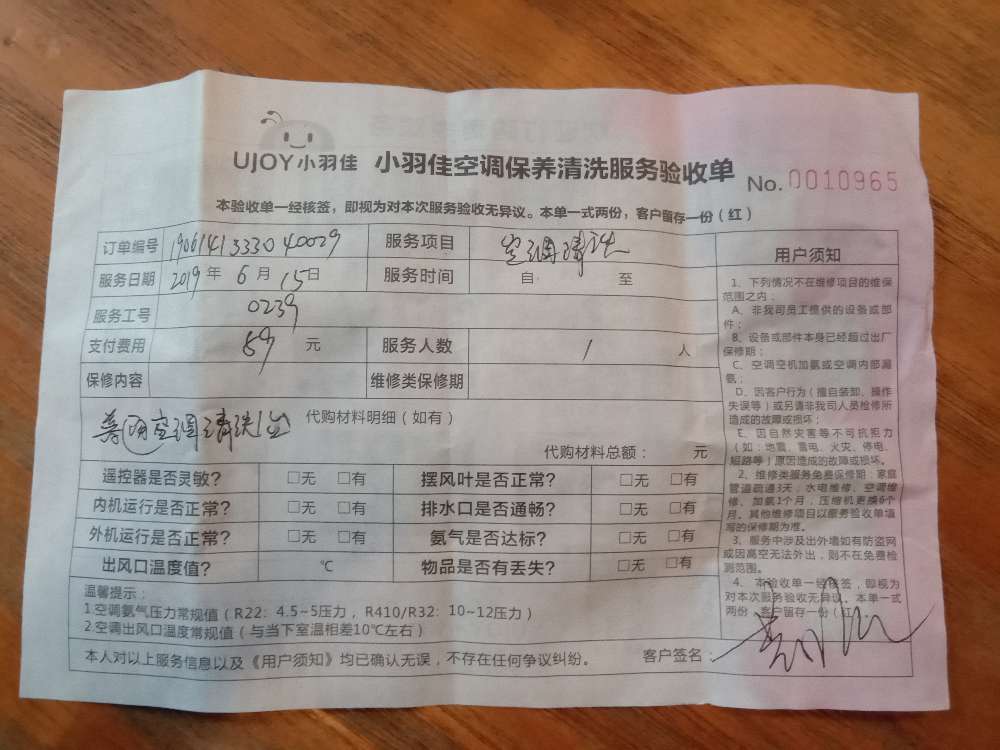 UJOY小羽佳 小羽佳空调保养清洗服务验收单 No.0010965
本验收单一经核签，即视为对本次服务验收无异议。本单一式两份，客户留存一份（红）
订单编号 1906141333040029 服务项目 空调清洗
服务日期 2019年6月15日 服务时间 自 至
服务工号 0239
支付费用 89元 服务人数 1人
保修内容 维修类保修期
普通空调清洗1台 代购材料明细（如有）
代购材料总额： 元
遥控器是否灵敏? □无 □有 摆风叶是否正常? □无 □有
内机运行是否正常? □无 □有 排水口是否通畅? □无 □有
外机运行是否正常? □无 □有 氨气是否达标? □无 □有
出风口温度值? ℃ 物品是否有丢失? □无 □有
温馨提示：
1.空调氨气压力常规值（R22：4.5~5压力，R410/R32：10~12压力）
2.空调出风口温度常规值（与当下室温相差10℃左右）
本人对以上服务信息以及《用户须知》均已确认无误，不存在任何争议纠纷。 客户签名：
用户须知
1、下列情况不在维修项目的维保
范围之内：
A、非我司员工提供的设备或部
件；
B、设备或部件本身已经超过出厂
保修期；
C、空调空机加氨或空调内部漏
氨；
D、因客户行为（擅自装卸、操作
失误等）或另请非我司人员检修所
造成的故障或损坏；
E、因自然灾害等不可抗拒力
（如：地震、雷电、火灾、停电、
短路等）原因造成的故障或损坏。
2、维修类服务免费保修期：家庭
管道疏通3天，水电维修、空调维
修、加氨1个月，压缩机更换6个
月。其他维修项目以服务验收单填
写的保修期为准。
3、服务中涉及出外墙如有防盗网
或因高空无法外出，则不在免费检
测范围。
4、本验收单一经核签，即视为
对本次服务验收无异议。本单一式
两份，客户留存一份（红）